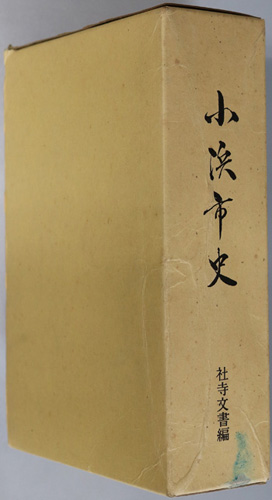 小浜市史
社寺文書編